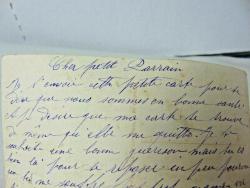 Cher petit Parrain
Je t'envoie cette petite carte pour te
dire que nous sommes en bonne santé
et je désire que ma carte te trouve
de même qu'elle me quitte. Je te
souhait une bonne guérison mais tu es
bien là pour te reposer un peu pour